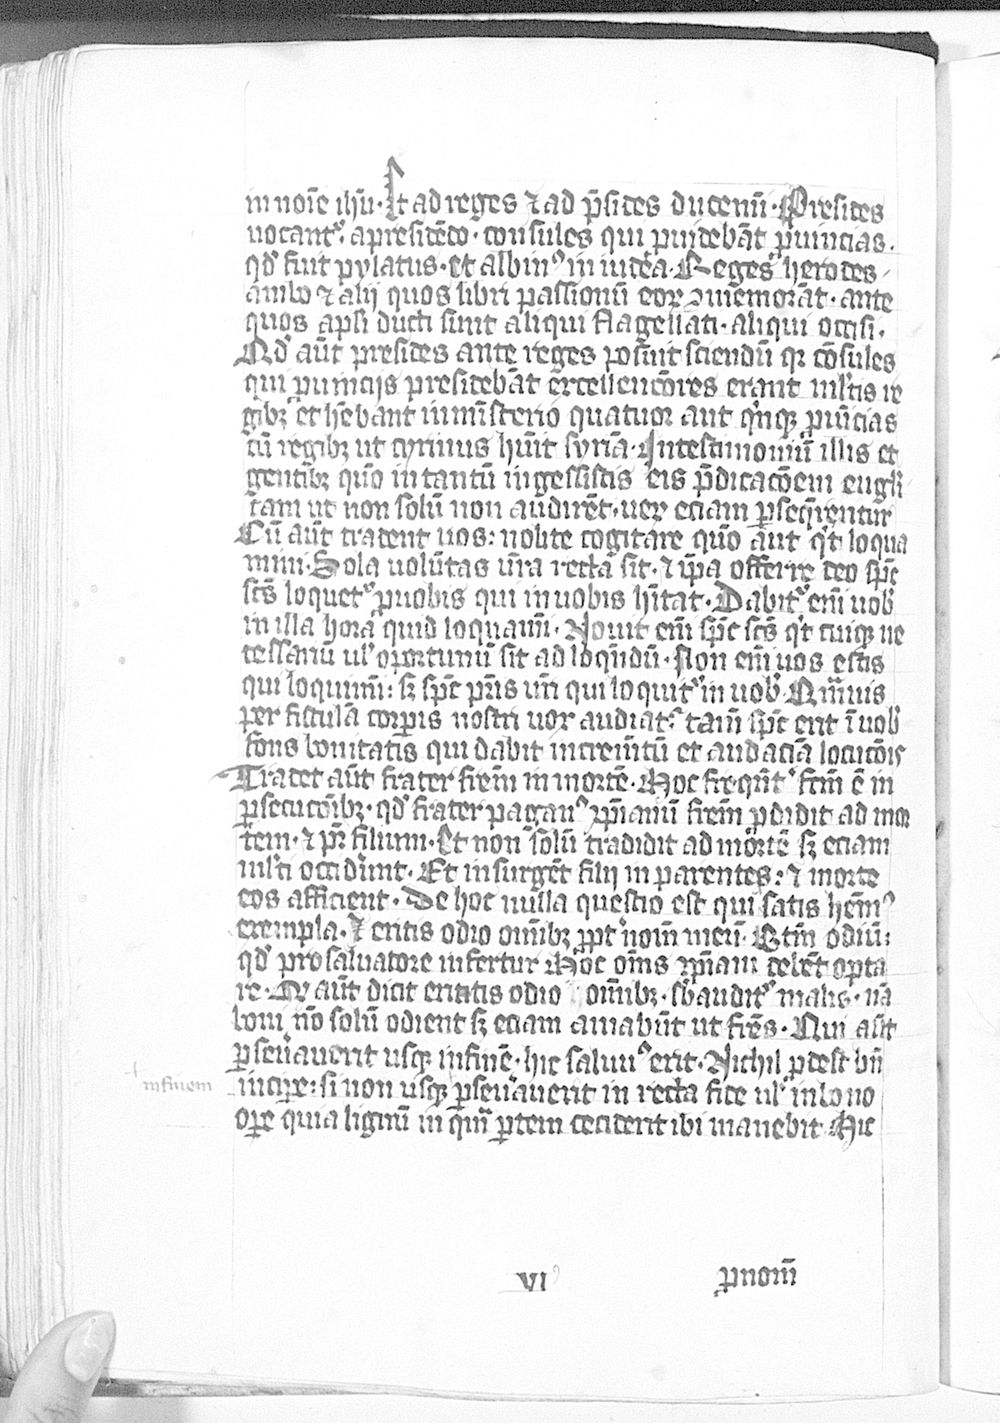 in noīe ihū · Et ad reges ⁊ ad p̄sides ducemī · Presides
uocant᷑ a presidēdo · consules qui p̱uidebāt p̱uincias ·
qd̓ fuit pylatus · et albinꝰ in iudea · Reges herodes
ambo ⁊ alij quos libri passionū eoꝝ ꝯmemorāt · ante
quos apl̄i ducti sunt aliqui flagellati · aliqui occisi ·
Qd̓ aūt presides ante reges posuit sciendū qꝛ cōsules
qui p̱uincijs presidebāt excellencōres erant ml̓tis re
gibꝫ et hēbant in mīsterio quatuor aut qͥnqꝫ p̱uīcias
cū regibꝫ ut cyrinus hūit syriā · In testimoniū illis et
gentibꝫ qūo in tantū ingessistis eis p̄dicacōem eūgli
cam ut non solū non audirēt · ueꝝ eciam p̱seq̄rentur
Cū aūt tradent uos : nolite cogitare qūo aut qͥd loqua
mini · Sola uolūtas ūra recta sit · ⁊ ip̄a offerre deo sp̄c
sc̄s loquet᷑ p̱ uobis qui in uobis hītat · Dabit᷑ em̄ uob̓
in illa hora quid loquamī · Nouit em̄ sp̄c sc̄s qͥd cuiqꝫ ne
cessariū ul̓ oportunū sit ad loq̄ndū · Non em̄ uos estis
qui loquimī : sꝫ sp̄c pr̄is ur̄i qui loquit᷑ in uob̓ · Quīuis
per fistulā corp̱is nostri uox audiat᷑ tam̄ sp̄c erit ī uob̓
fons bonitatis qui dabit incremtū et audaciā locucōis
Tradet aūt frater frēm in mortē · Hoc freqūt᷑ fcm̄ ē in
p̱secucōibꝫ · qd̓ frater paganꝰ xp̄ianū frēm p̱didit ad mor
tem · ⁊ pr̄ filium · Et non solū tradidit ad mortē sꝫ eciam
ml̓ti occidūnt · Et insurgēt filij in parentes : ⁊ morte
eos afficient · De hoc nulla questio est qui satis hēmꝰ
exempla · Et eritis odio om̄ibꝫ p̱pt̓ nom̄ meū · Etm̄ odiū :
qd̓ pro saluatore infertur Hoc om̄s xp̄iani debēt opta
re · Qr̄ aūt dicit eritis odio om̄ibꝫ · sb̓audit᷑ malis · nā
boni nō solū odient sꝫ eciam amabūt ut frēs · Qui aūt
p̱seūauerit usqꝫ in finē · hic saluuꝰ erit · Nichil p̱dest bn̄
incip̱e : si non usqꝫ p̱seūauerit in recta fide ul̓ in bono
op̱e quia lignū in qm̄ p̱tem ceciderit ibi manebit Hic
in finem
VI
p̱ nom̄